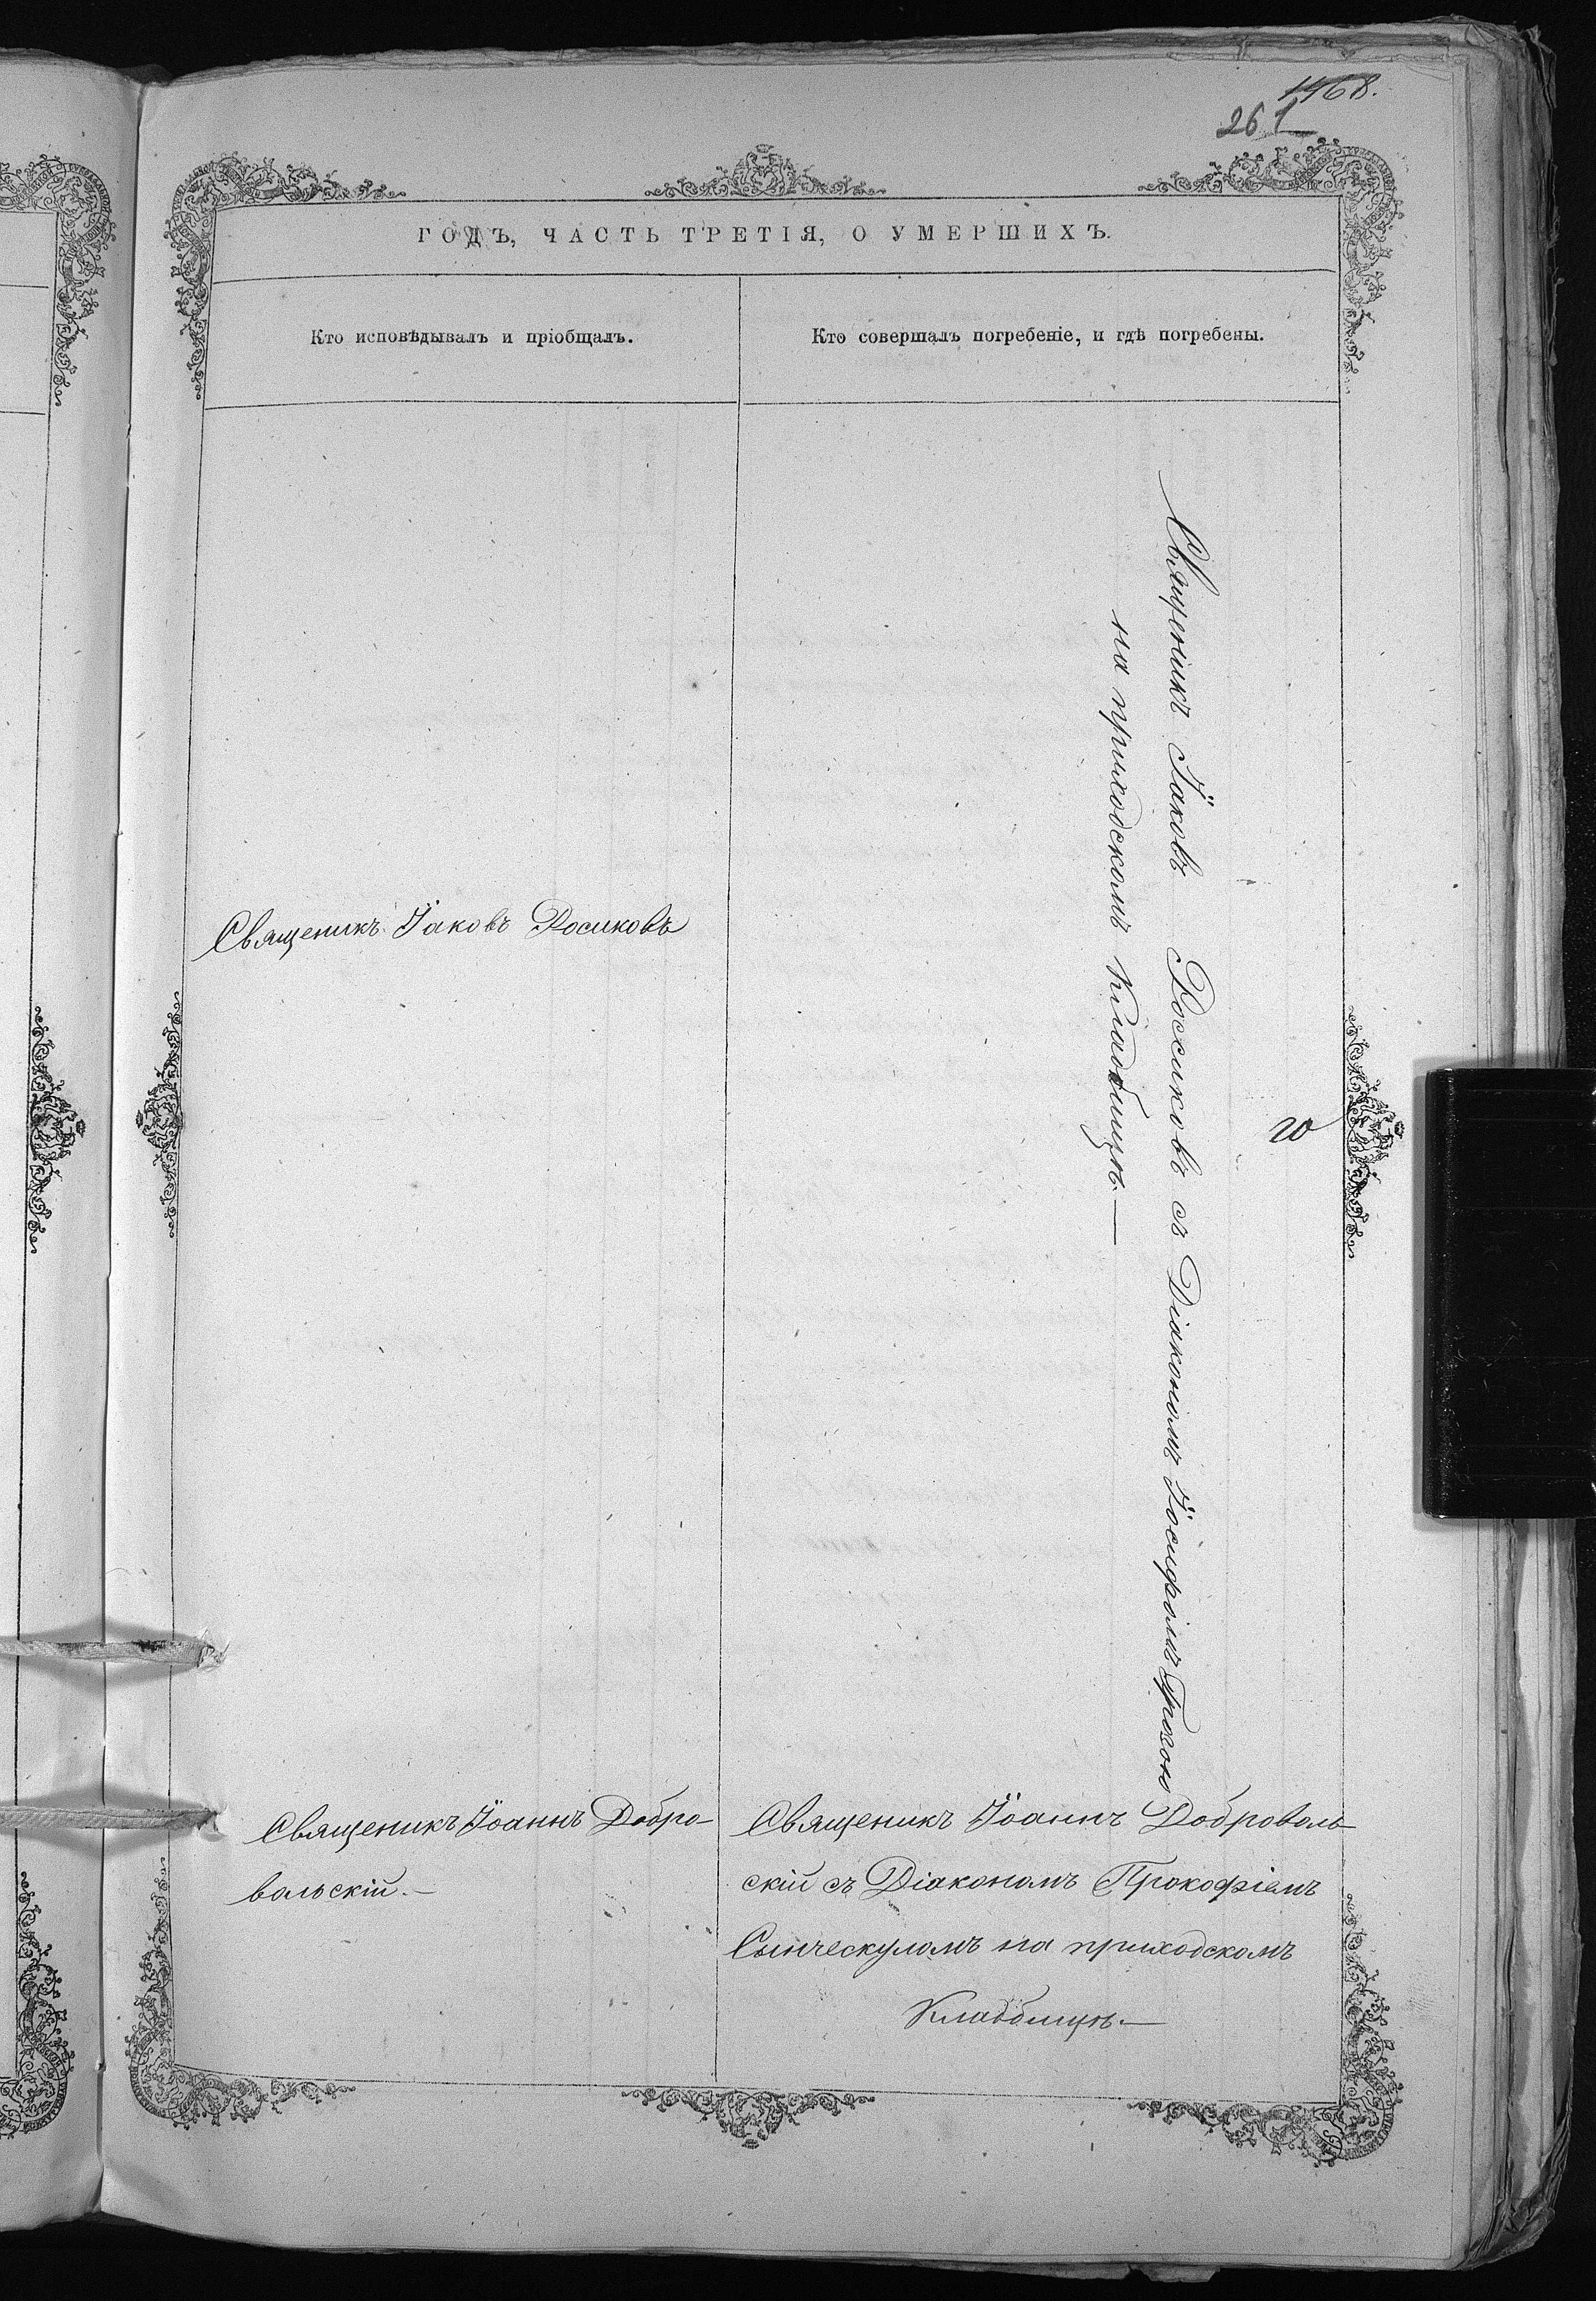 1468.
261
ГОДЪ, ЧАСТЬ ТРЕТІЯ, О УМЕРШИХЪ.
Кто исповѣдывалъ и пріобщалъ.
Кто совершалъ погребеніе, и гдѣ погребены.
Священикъ Іаковъ Росиковъ
Священикъ Іаковъ Россиковъ съ Діакономъ Іосифомъ
на приходскомъ кладбищѣ.—
Священикъ Іоаннъ Добро-
вольскій.—
Священикъ Іоаннъ Доброволь-
скій съ Діакономъ Прокофіемъ
Сынческуломъ на приходскомъ
Кладбищѣ.—